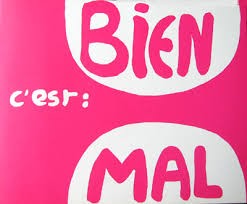 BiEN
c'est:
MAL